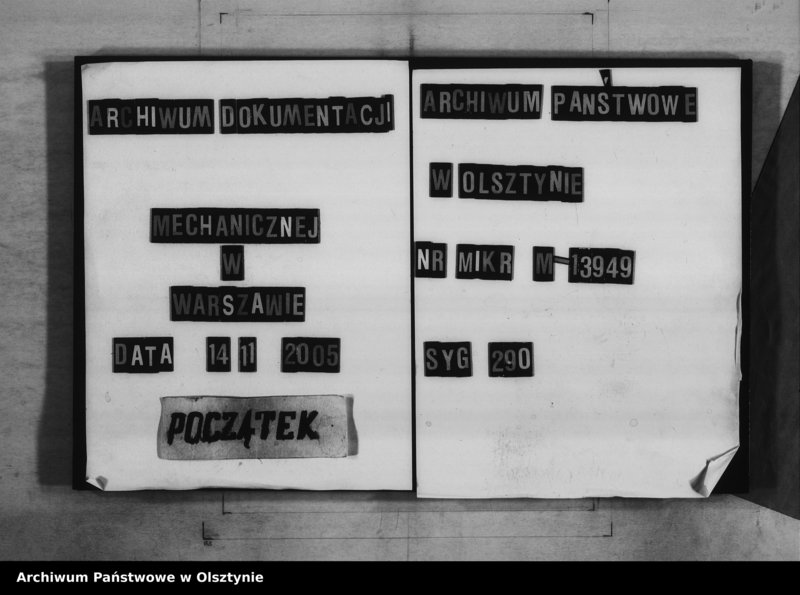 ARCHIWUM DOKUMENTACJI
MECHANICZNEJ
W
WARSZAWIE
DATA 14 11 2005
POCZĄTEK
ARCHIWUM PAŃSTWOWE
W OLSZTYNIE
NR MIKR M-13949
SYG 290
Archiwum Państwowe w Olsztynie